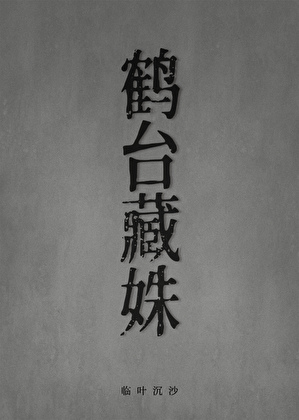 鹤台藏姝
临叶沉沙